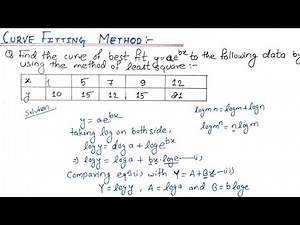 CURVE FITTING METHOD:-
Q. Find the curve of best fit y=ae^bx to the following data by
using the method of least square:-
x 1 5 7 9 12
y 10 15 12 15 21
Solution
logmn = logm + logn
y = ae^bx
log m^n = n logm
taking log on both side,
logy = log a + log e^bx
⇒ logy = log a + bx·loge —(i)
Comparing eqn(i) with Y = A+Bx —(ii)
Y = logy, A = loga and B = b loge